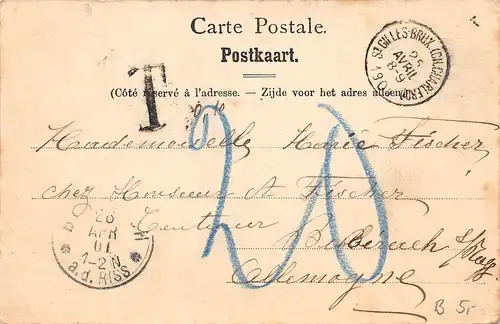 Carte Postale.
Postkaart.
(Côté réservé à l'adresse. — Zijde voor het adres alleen)
T
ST GILLES-BRUX. (CH. CHARLEROI)
25
AVRIL
8-9
1901
Mademoiselle Marie Fischer
chez Monsieur A Fischer
Biberach s/Riss
Allemagne
20
26
APR
01
1-2 N
a.d. RISS
B 5,-